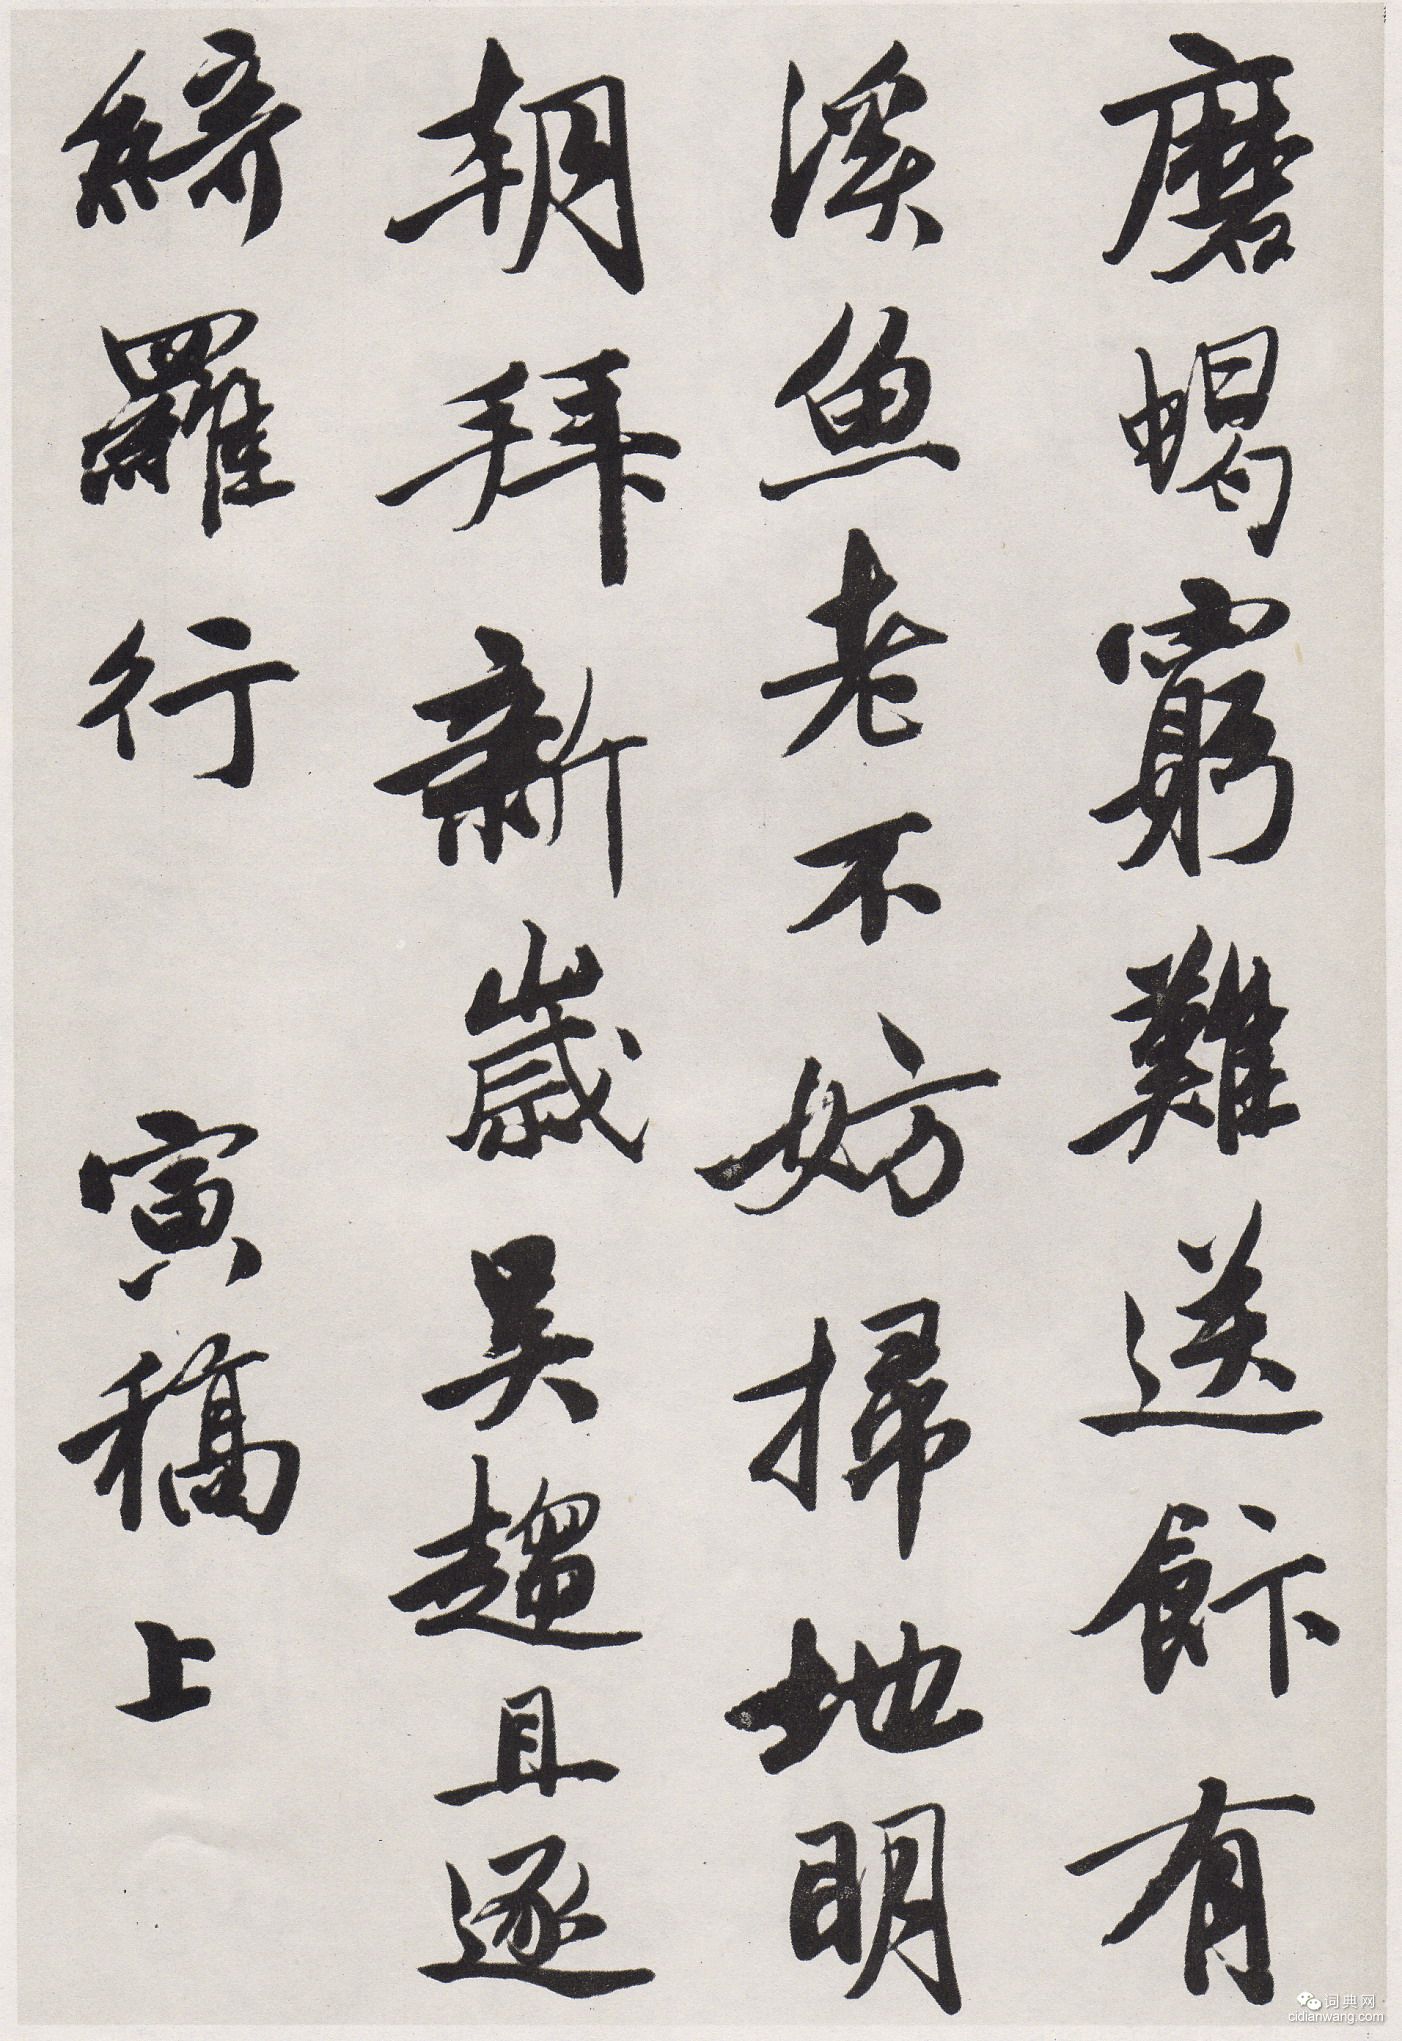 磨蝎窮難送飰有
溪魚老不妨掃地明
朝拜新歲吴趨且逐
綺羅行　寅稿上
词典网
cidianwang.com